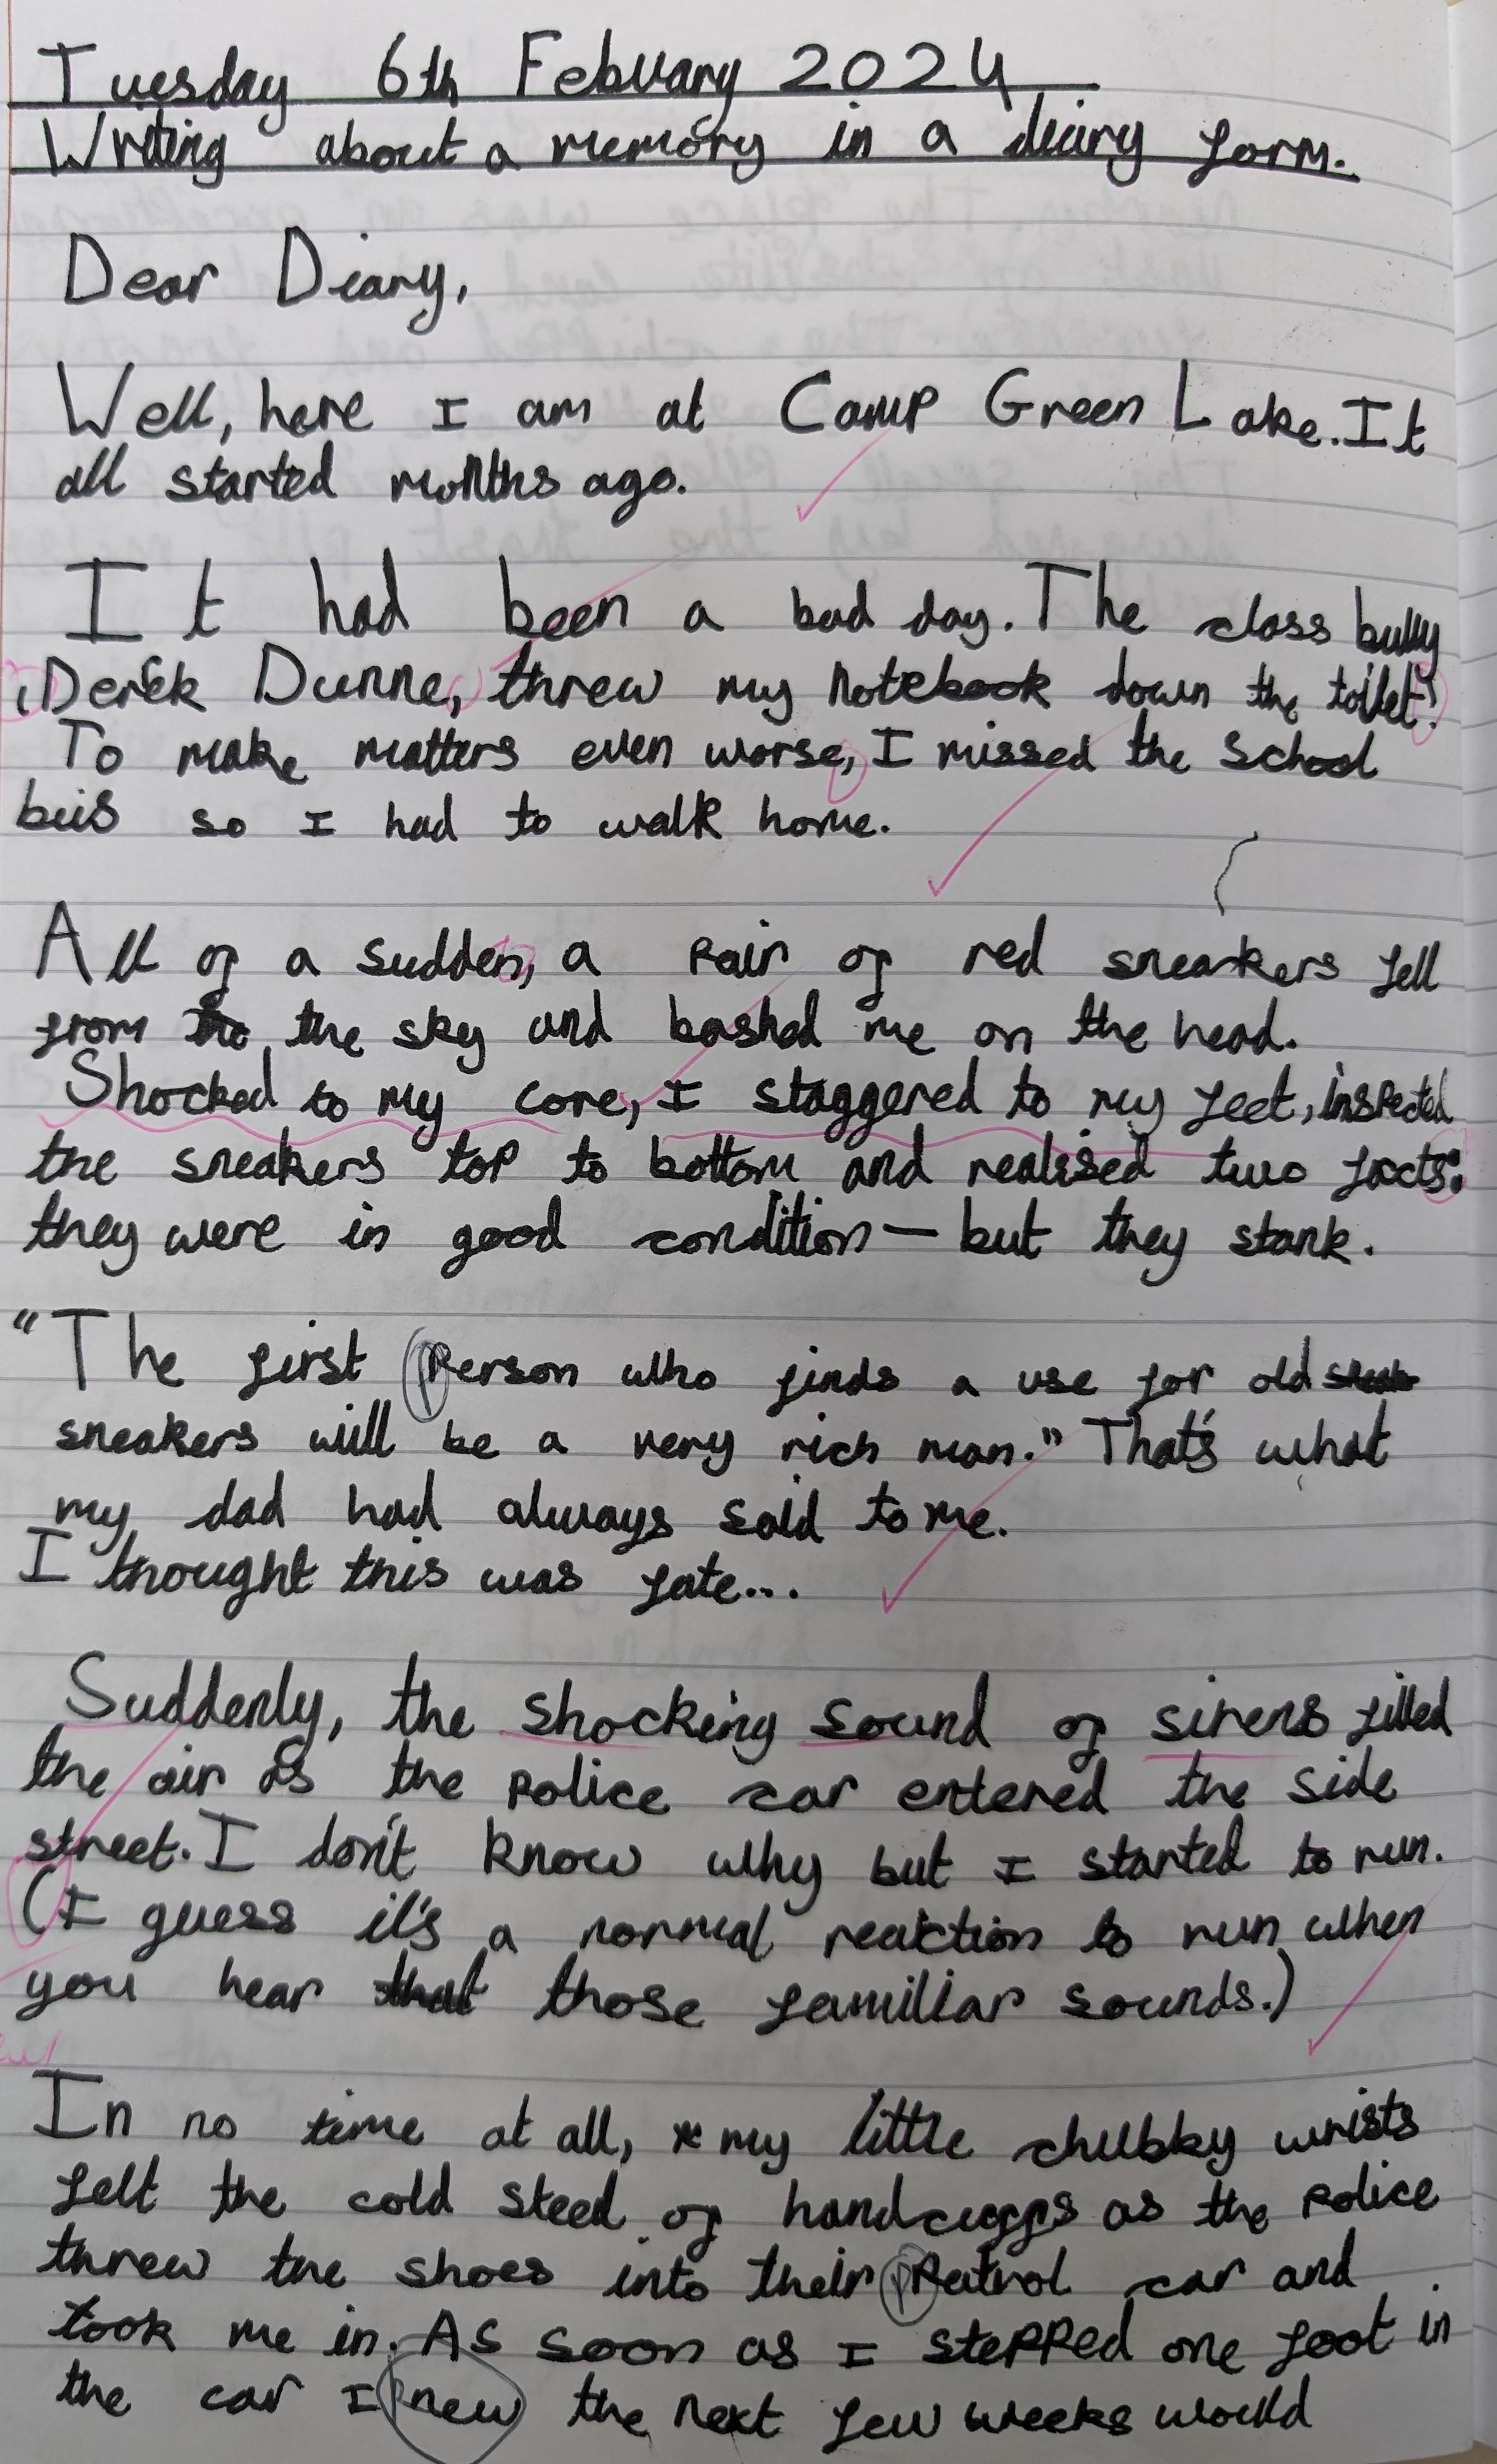 Tuesday 6th Febuary 2024
Writing about a memory in a diary form.
Dear Diary,
Well, here I am at Camp Green Lake. It
all started months ago.
It had been a bad day. The class bully
(Derek Dunne, threw my notebook down the toilet)!
To make matters even worse, I missed the school
bus so I had to walk home.
All of a sudden, a pair of red sneakers fell
from the the sky and bashed me on the head.
Shocked to my core, I staggered to my feet, inspected
the sneakers top to bottom and realised two facts:
they were in good condition — but they stank.
"The first person who finds a use for old
sneakers will be a very rich man." That's what
my dad had always said to me.
I thought this was fate...
Suddenly, the shocking sound of sirens filled
the air as the police car entered the side
street. I don't know why but I started to run.
(I guess it's a normal reaction to run when
you hear that those familiar sounds.)
In no time at all, my little chubby wrists
felt the cold steed of handcuffs as the police
threw the shoes into their patrol car and
took me in. As soon as I stepped one foot in
the car I knew the next few weeks would